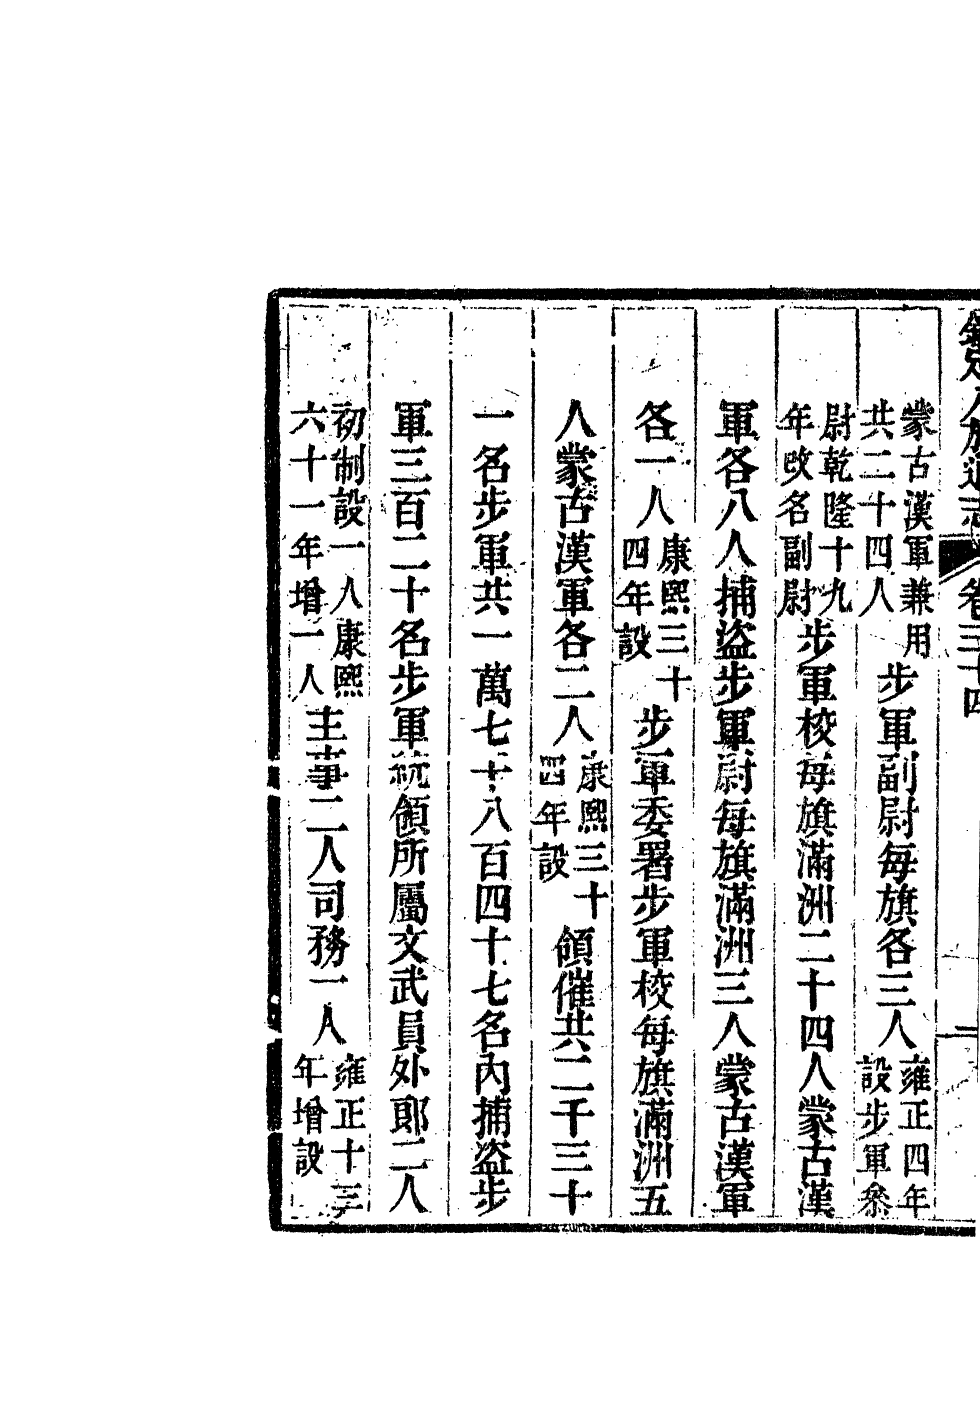 欽定八旗通志 卷三十四 二
蒙古漢軍兼用共二十四人步軍副尉每旗各三人雍正四年設步軍叅
尉乾隆十九年改名副尉步軍校每旗滿洲二十四人蒙古漢
軍各八人捕盜步軍尉每旗滿洲三人蒙古漢軍
各一人康熙三十四年設步軍委署步軍校每旗滿洲五
人蒙古漢軍各二人康熙三十四年設領催共二千三十
一名步軍共一萬七千八百四十七名內捕盜步
軍三百二十名步軍統領所屬文武員外郎二人
初制設一人康熙六十一年增一人主事二人司務一人雍正十三年增設